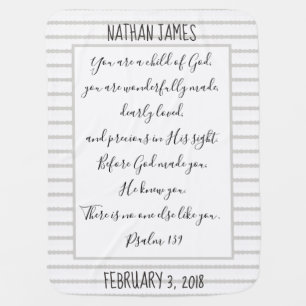 NATHAN JAMES
You are a child of God,
you are wonderfully made,
dearly loved,
and precious in His sight.
Before God made you,
He knew you.
There is no one else like you.
Psalm 139
FEBRUARY 3, 2018